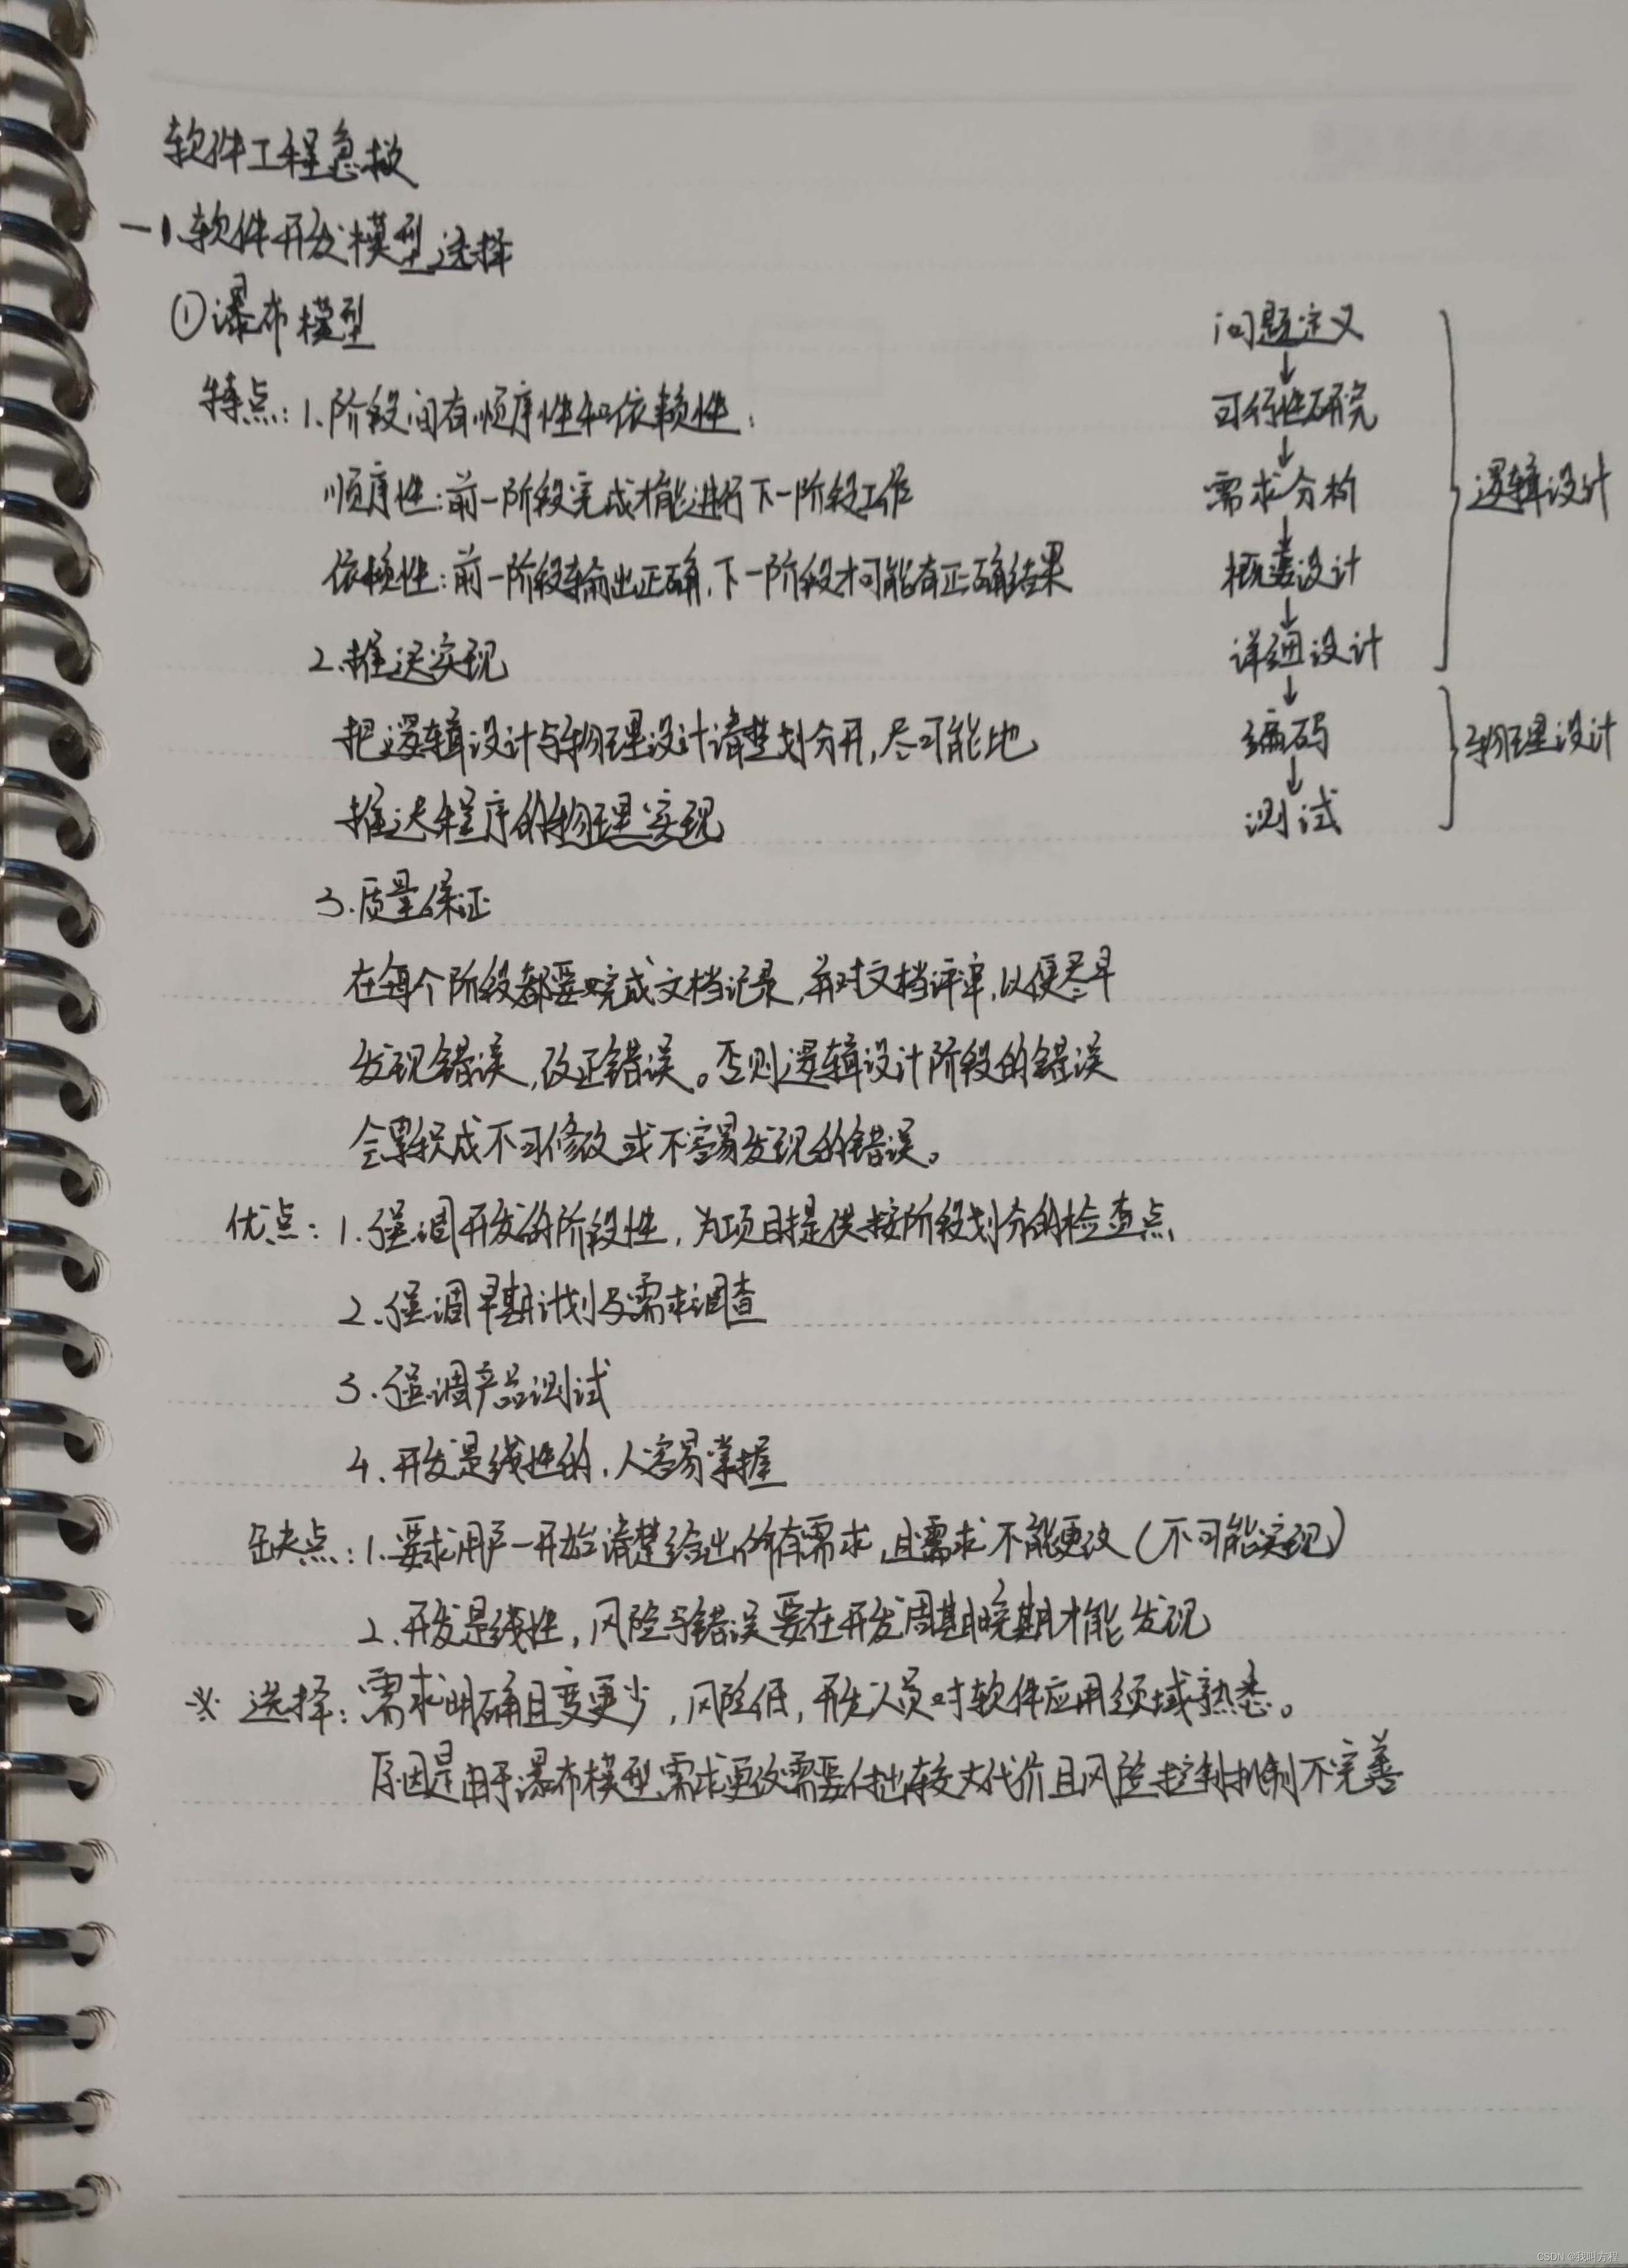 软件工程急救
一1.软件开发模型选择
①瀑布模型
特点：1.阶段间有顺序性和依赖性：
顺序性：前一阶段完成才能进行下一阶段工作
依赖性：前一阶段输出正确，下一阶段才可能有正确结果
2.推迟实现
把逻辑设计与物理设计清楚划分开，尽可能地
推迟程序的物理实现
3.质量保证
在每个阶段都要完成文档记录，并对文档评审，以便尽早
发现错误，改正错误。否则逻辑设计阶段的错误
会累积成不可修改或不容易发现的错误。
优点：1.强调开发的阶段性，为项目提供按阶段划分的检查点
2.强调早期计划与需求调查
3.强调产品测试
4.开发是线性的，人容易掌握
缺点：1.要求用户一开始清楚给出所有需求，且需求不能更改（不可能实现）
2.开发是线性，风险与错误要在开发周期晚期才能发现
※ 选择：需求明确且变更少，风险低，开发人员对软件应用领域熟悉。
原因是由于瀑布模型需求更改需要付出较大代价且风险控制机制不完善
问题定义
↓
可行性研究
↓
需求分析
↓
概要设计
↓
详细设计
↓
编码
↓
测试
逻辑设计
物理设计
CSDN @我叫方程